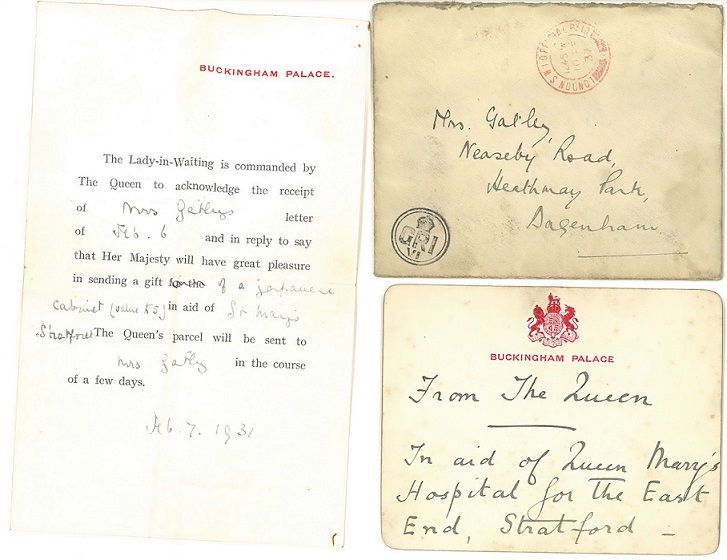 BUCKINGHAM PALACE.
The Lady-in-Waiting is commanded by
The Queen to acknowledge the receipt
of Mrs Gatleys letter
of Feb. 6 and in reply to say
that Her Majesty will have great pleasure
in sending a gift of a japanese
cabinet (value £5) in aid of St Mary's
Stratford The Queen's parcel will be sent to
Mrs Gatley in the course
of a few days.
Feb. 7. 1931
LONDON S.W.1
Mrs. Gatley,
Neaseby Road,
Heathway Park,
Dagenham.
GRI
VI
BUCKINGHAM PALACE
From The Queen
In aid of Queen Mary's
Hospital for the East
End, Stratford —